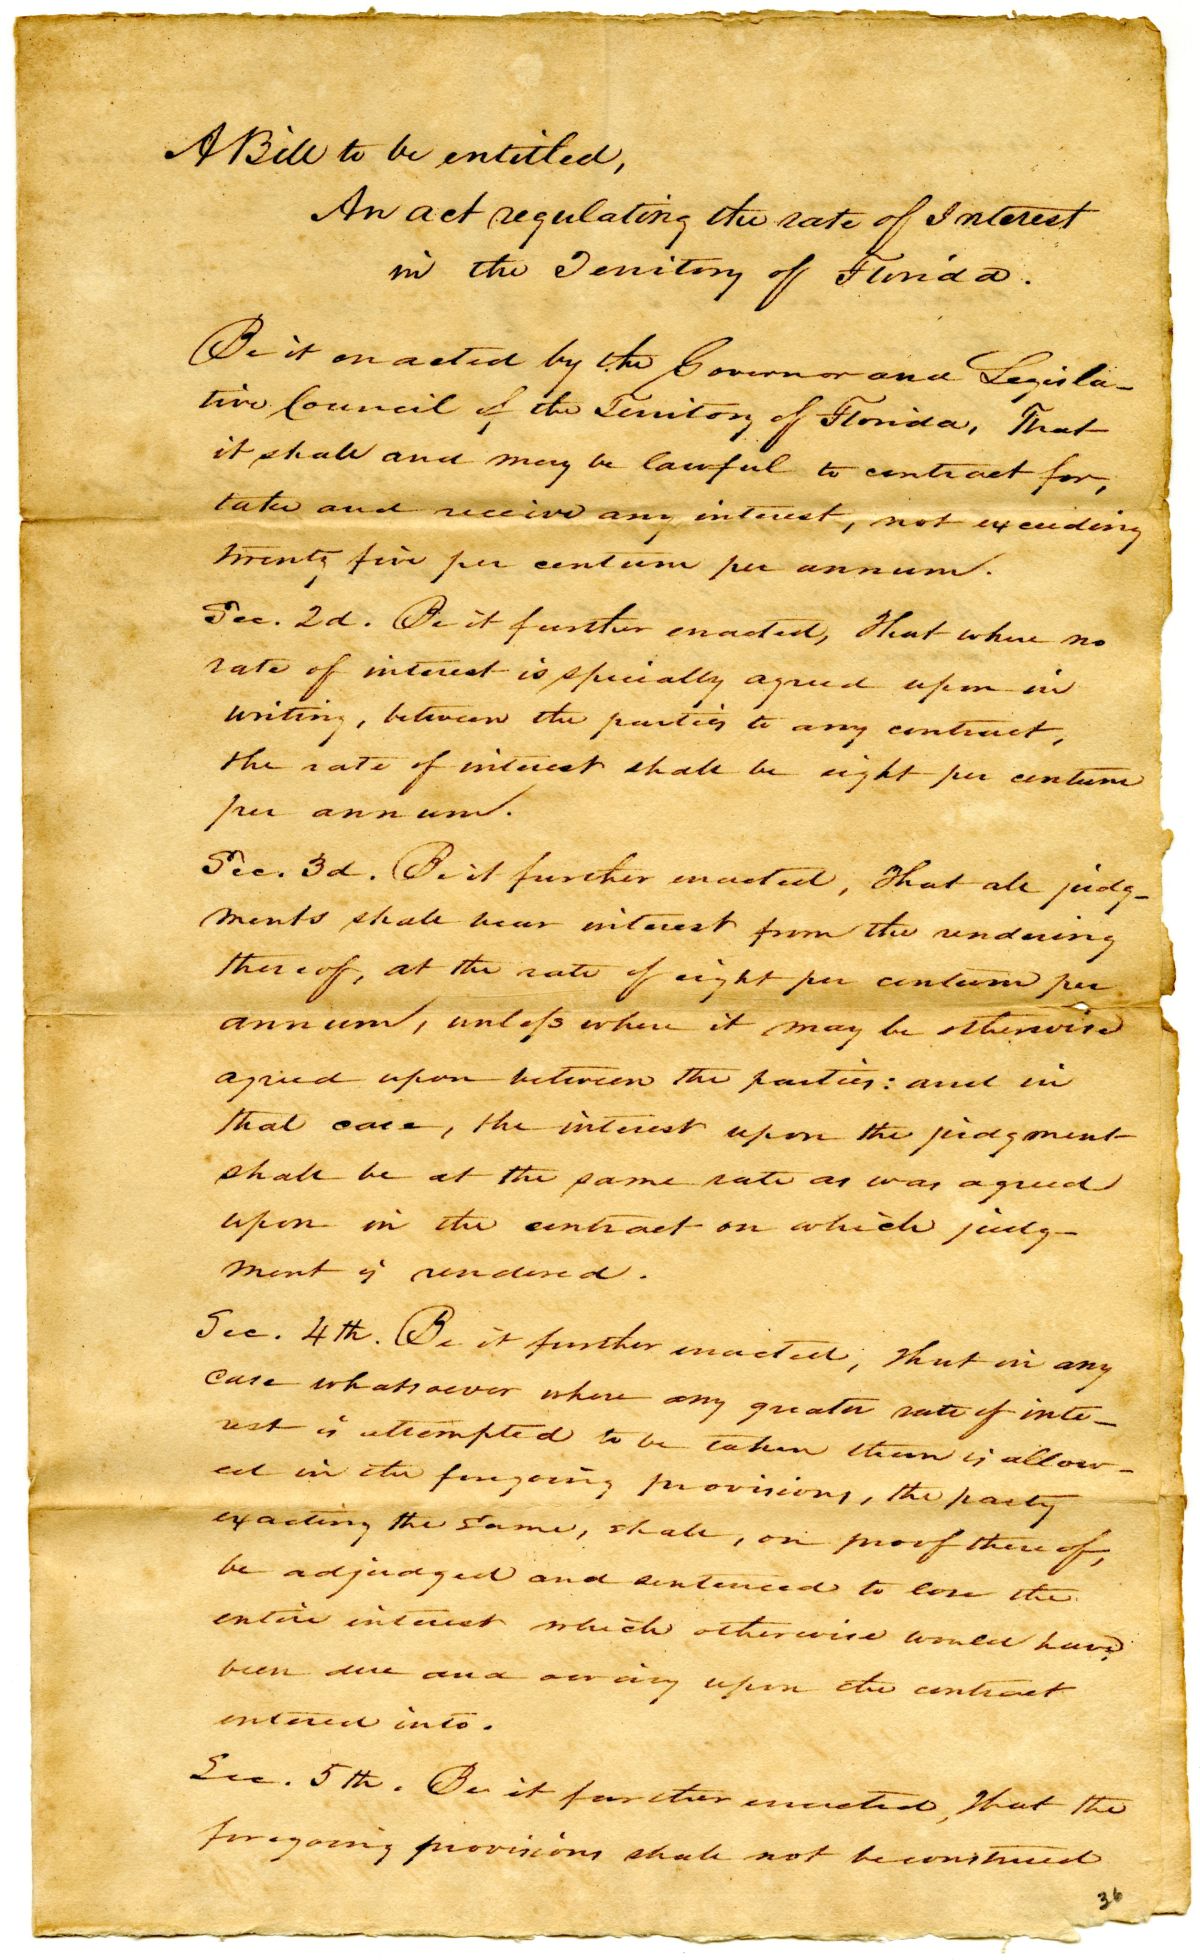 A Bill to be entitled,
An act regulating the rate of Interest
in the Territory of Florida.
Be it enacted by the Governor and Legisla-
tive Council of the Territory of Florida, That
it shall and may be lawful to contract for,
take and receive any interest, not exceeding
twenty five per centum per annum.
Sec. 2d. Be it further enacted, That where no
rate of interest is specially agreed upon in
writing, between the parties to any contract,
the rate of interest shall be eight per centum
per annum.
Sec. 3d. Be it further enacted, That all judg-
ments shall bear interest from the rendering
thereof, at the rate of eight per centum per
annum, unless where it may be otherwise
agreed upon between the parties: and in
that case, the interest upon the judgment
shall be at the same rate as was agreed
upon in the contract on which judg-
ment is rendered.
Sec. 4th. Be it further enacted, That in any
case whatsoever where any greater rate of inte-
rest is attempted to be taken than is allow-
ed in the foregoing provisions, the party
exacting the same, shall, on proof thereof,
be adjudged and sentenced to lose the
entire interest which otherwise would have
been due and owing upon the contract
entered into.
Sec. 5th. Be it further enacted, That the
foregoing provisions shall not be construed
36